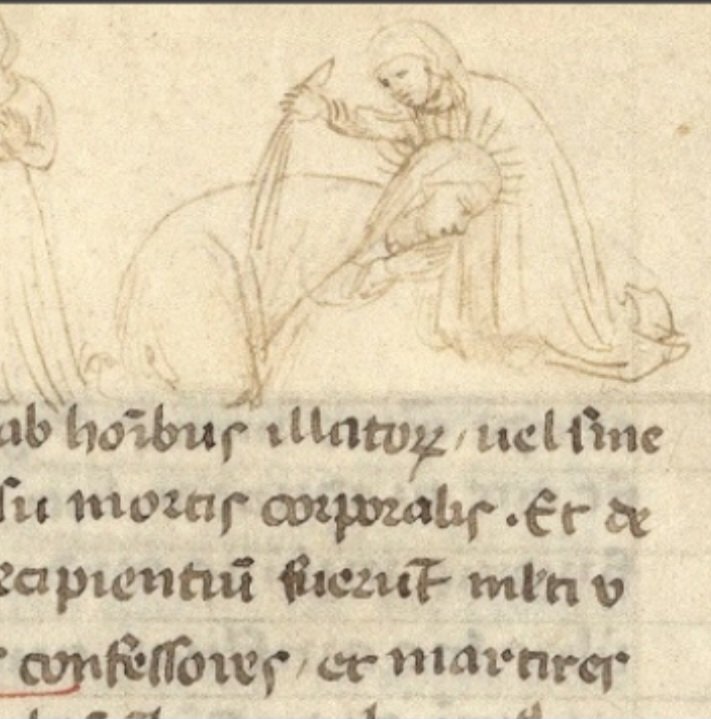 ab hoı̄bus illatoꝝ / uel sine
su mortis corporalis . Et de
ecipientiū fuerūt mlti v
confessores / et martires